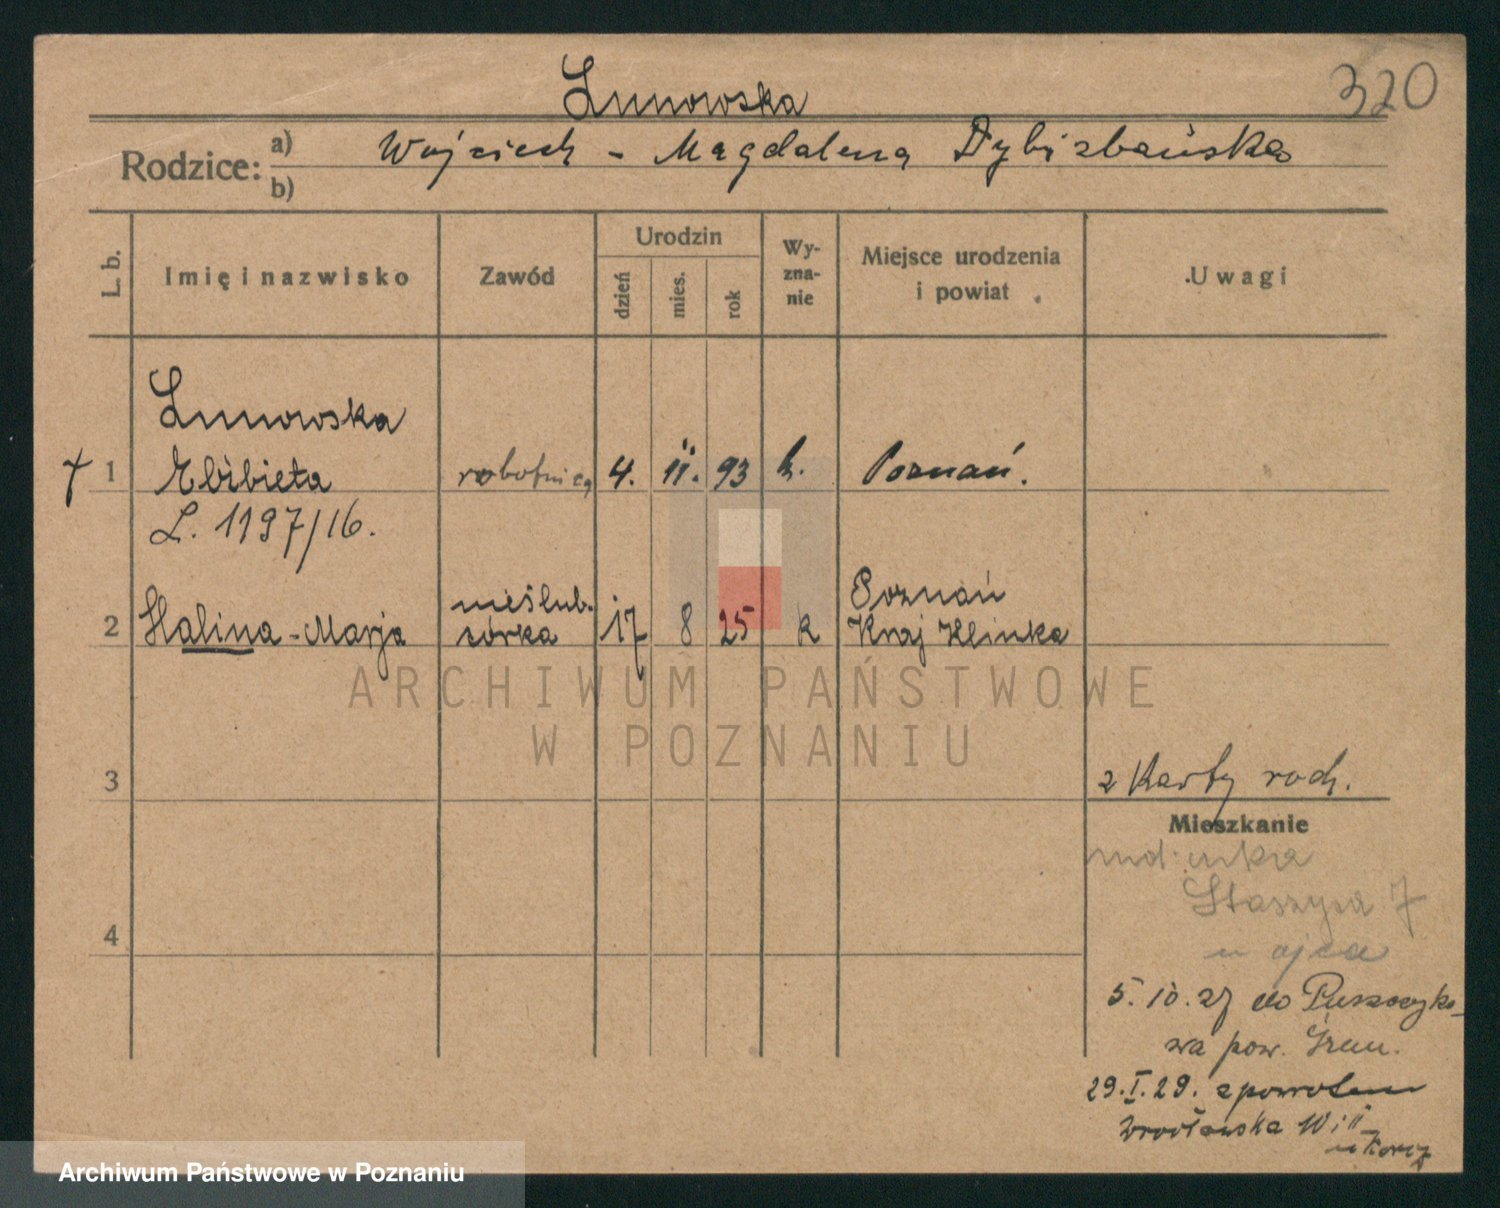 Lunowska
320
Rodzice: a) Wojciech - Magdalena Dybizbańska
b)
L. b.
Imię i nazwisko
Zawód
Urodzin
dzień
mies.
rok
Wy-
zna-
nie
Miejsce urodzenia
i powiat
Uwagi
Lunowska
1 Elżbieta robotnica 4. 11. 93 k. Poznań.
L. 1197/16.
nieślub. Poznań
2 Halina-Marja córka 17 8 25 k Kraj Klinka
ARCHIWUM PAŃSTWOWE
W POZNANIU
3
z Karty rodz.
Mieszkanie
Staszyca 7
u ojca
4
5.10.27 do Puszczyko-
wa pow. Śrem.
29.I.29. z powrotem
Wrocławska 10 II
Archiwum Państwowe w Poznaniu